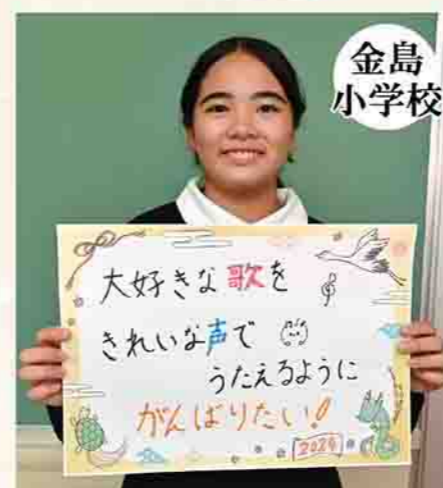 金島
小学校
大好きな歌を
きれいな声で
うたえるように
がんばりたい!
2024